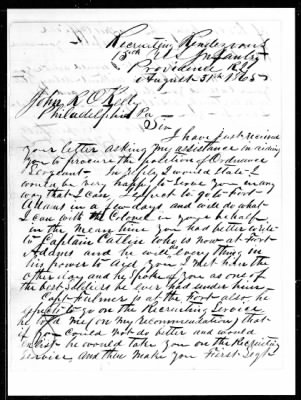 Recruiting Rendezvous
15th U.S. Infantry
Providence R.I.
August 31st 1865
John R O'Kelly
Philadelphia Pa
Sir
I have just received
your letter asking my assistance in aiding
you to procure the position of Ordnance
Sergeant. In reply I would state I
would be very happy to serve you in any
way that I can. I expect to go to Fort
Adams in a few days, and will do what
I can with the Colonel in your behalf.
in the mean time you had better write
to Captain Catlin who is now at Fort
Adams and he will every thing in
his power to aid you. I met him the
other day and he spoke of you as one of
the best soldiers he ever had under him.
Capt Fulmer is at the Fort also, he
expects to go on the Recruiting Service
he told me (on my recommendation) that
if you could not do better and would
enlist he would take you on the Recruiting
Service, and then make you First Sergt